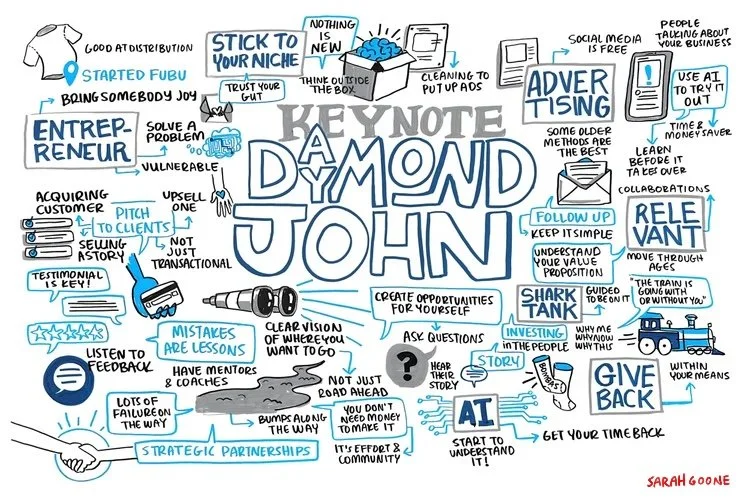 GOOD AT DISTRIBUTION
STARTED FUBU
BRING SOMEBODY JOY
ENTREP-
RENEUR
SOLVE A
PROBLEM
VULNERABLE
STICK TO
YOUR NICHE
TRUST YOUR
GUT
NOTHING
IS
NEW
THINK OUTSIDE
THE BOX
CLEANING TO
PUT UP ADS
ADVER
TISING
SOCIAL MEDIA
IS FREE
PEOPLE
TALKING ABOUT
YOUR BUSINESS
USE AI
TO TRY IT
OUT
TIME &
MONEY SAVER
LEARN
BEFORE IT
TAKES OVER
SOME OLDER
METHODS ARE
THE BEST
FOLLOW UP
KEEP IT SIMPLE
KEYNOTE
DAYMOND
JOHN
ACQUIRING
CUSTOMER
UPSELL
ONE
PITCH
TO CLIENTS
SELLING
A STORY
NOT
JUST
TRANSACTIONAL
TESTIMONIAL
IS KEY!
COLLABORATIONS
RELE
VANT
MOVE THROUGH
AGES
UNDERSTAND
YOUR VALUE
PROPOSITION
"THE TRAIN IS
GOING WITH
OR WITHOUT YOU"
SHARK
TANK
GUIDED
TO BE ON IT
INVESTING
IN THE PEOPLE
WHY ME
WHY NOW
WHY THIS
CREATE OPPORTUNITIES
FOR YOURSELF
ASK QUESTIONS
?
HEAR
THEIR
STORY
STORY
BOMBAS!
GIVE
BACK
WITHIN
YOUR MEANS
MISTAKES
ARE LESSONS
LISTEN TO
FEEDBACK
HAVE MENTORS
& COACHES
CLEAR VISION
OF WHERE YOU
WANT TO GO
NOT JUST
ROAD AHEAD
LOTS OF
FAILURE ON
THE WAY
BUMPS ALONG
THE WAY
STRATEGIC PARTNERSHIPS
YOU DON'T
NEED MONEY
TO MAKE IT
IT'S EFFORT &
COMMUNITY
AI
START TO
UNDERSTAND
IT!
GET YOUR TIME BACK
SARAH GOONE